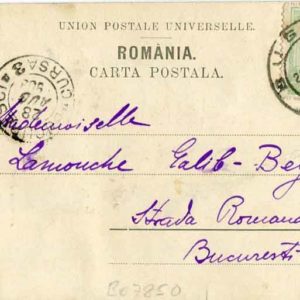 UNION POSTALE UNIVERSELLE.
ROMÂNIA.
CARTA POSTALA.
CURSA 3
28
AUG
Mademoiselle
Lamouche Galib-Bey
Strada Romana
Bucuresti
B07850